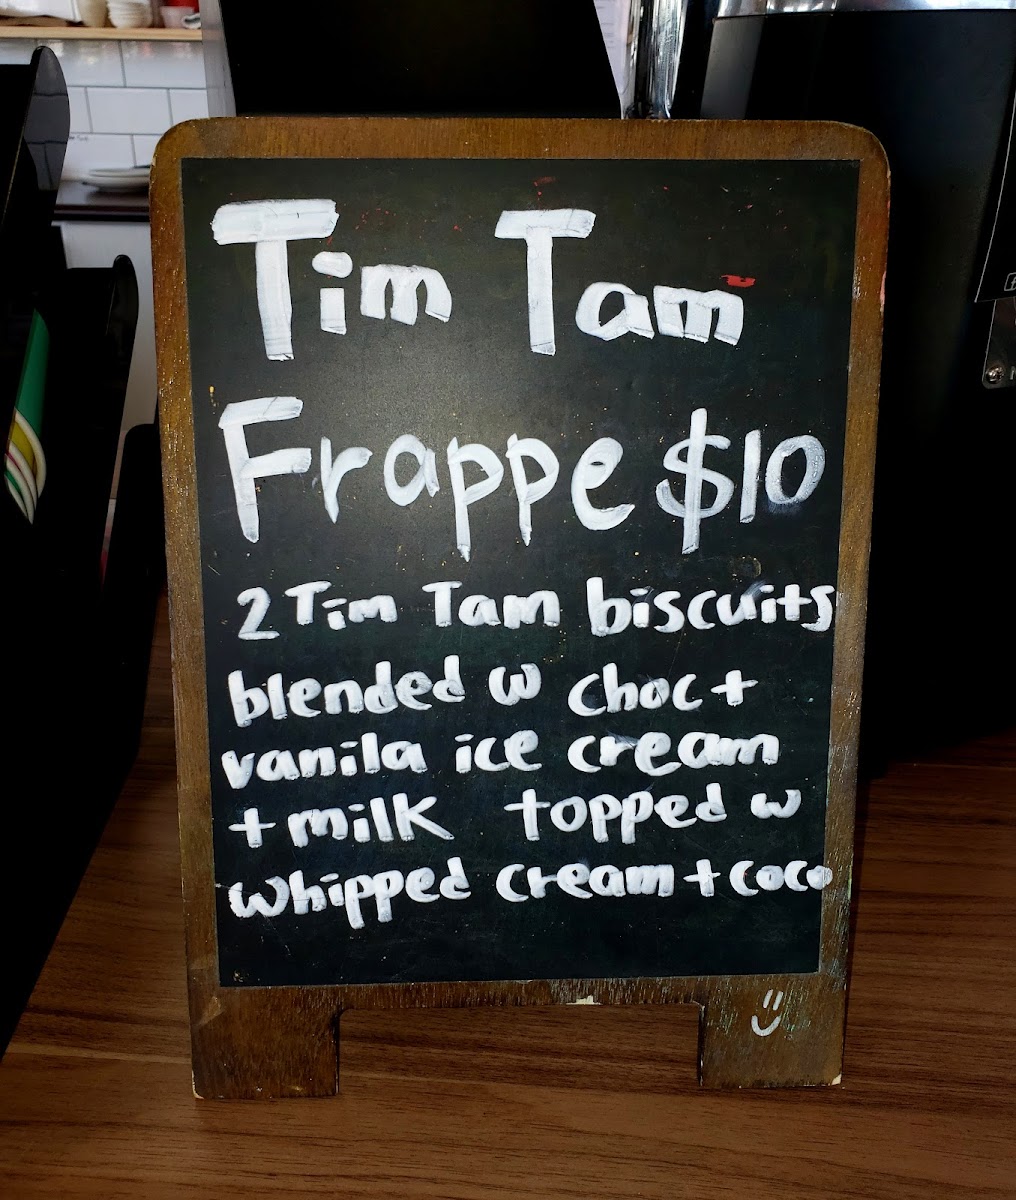 Tim Tam
Frappe $10
2 Tim Tam biscuits
blended w choc +
vanila ice cream
+ milk topped w
whipped cream + coco